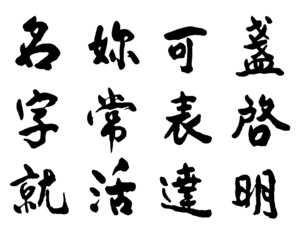 盞啓明
可表達
妳常活
名字就